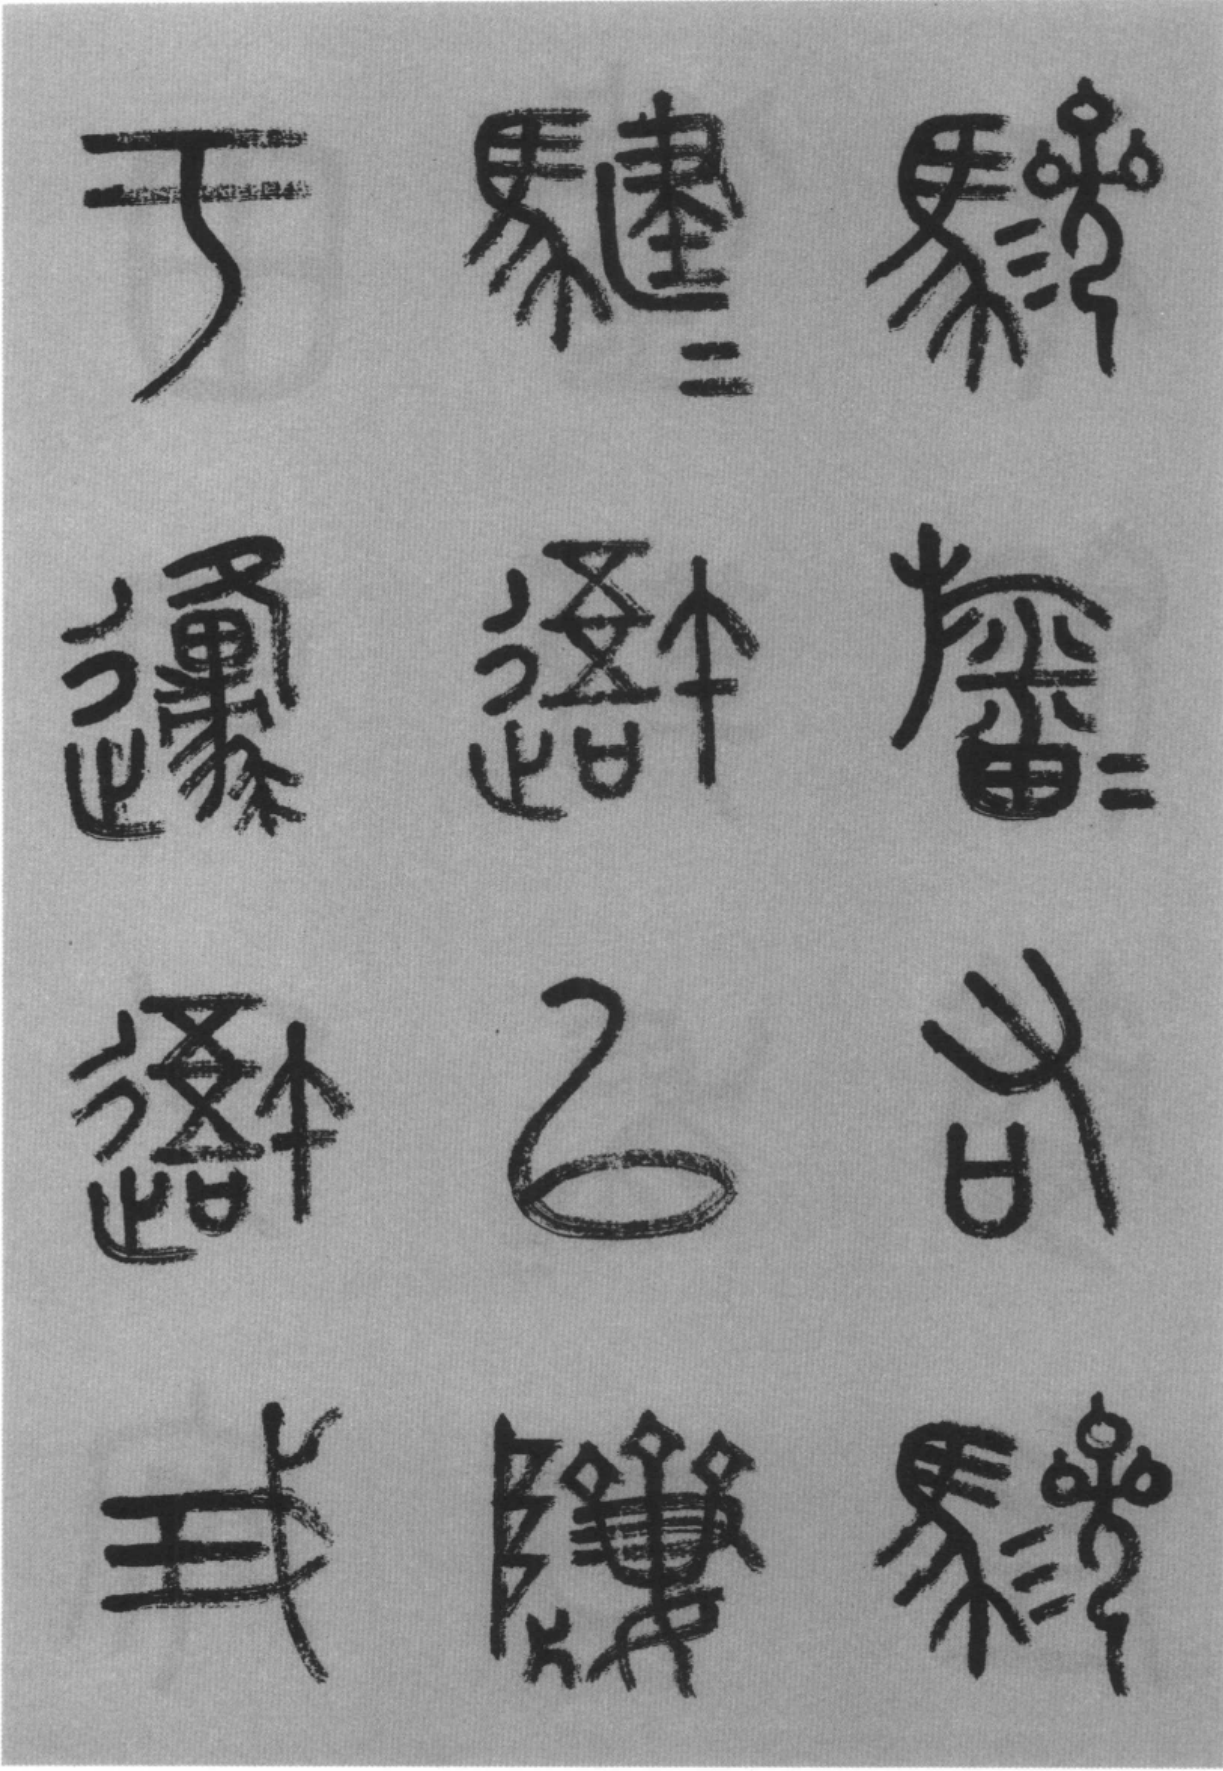 驂旛=右驂
騝=吾以隮
于邍吾戎